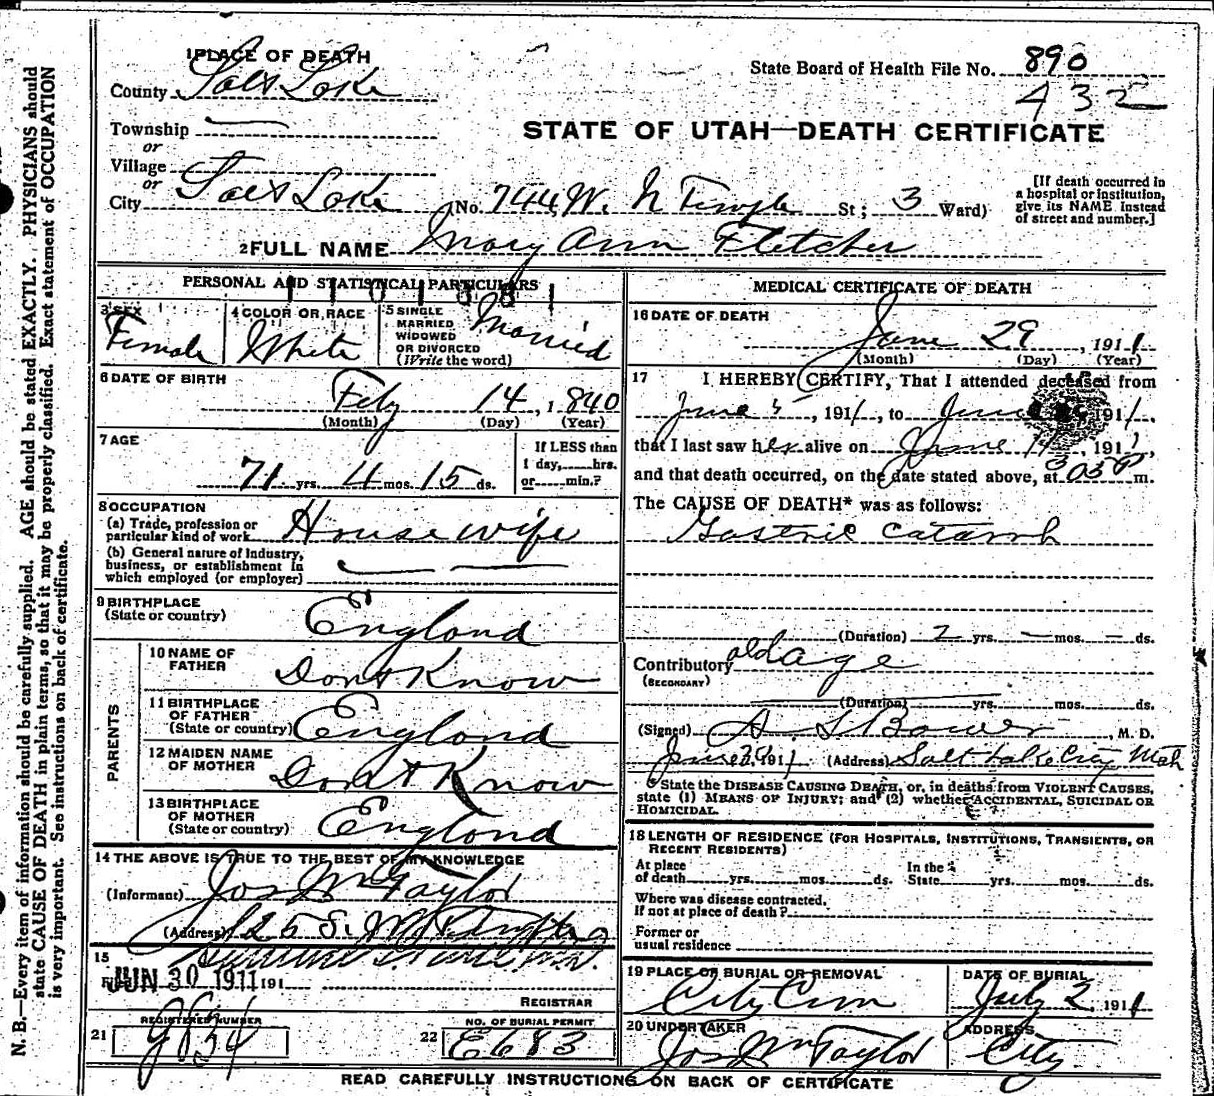 1 PLACE OF DEATH
County Salt Lake
Township
or
Village
or
City Salt Lake (No. 744 W. N Temple St; 3 Ward)
State Board of Health File No. 890
432
STATE OF UTAH—DEATH CERTIFICATE
[If death occurred in
a hospital or institution,
give its NAME instead
of street and number.]
2 FULL NAME Mary Ann Fletcher
PERSONAL AND STATISTICAL PARTICULARS
3 SEX
Female
4 COLOR OR RACE
White
5 SINGLE
MARRIED
WIDOWED
OR DIVORCED
(Write the word)
Married
6 DATE OF BIRTH
Feby 14, 1840
(Month) (Day) (Year)
7 AGE
71 yrs. 4 mos. 15 ds.
If LESS than
1 day, hrs.
or min.?
8 OCCUPATION
(a) Trade, profession or
particular kind of work Housewife
(b) General nature of industry,
business, or establishment in
which employed (or employer)
9 BIRTHPLACE
(State or country) England
PARENTS
10 NAME OF
FATHER Dont Know
11 BIRTHPLACE
OF FATHER
(State or country) England
12 MAIDEN NAME
OF MOTHER Dont Know
13 BIRTHPLACE
OF MOTHER
(State or country) England
14 THE ABOVE IS TRUE TO THE BEST OF MY KNOWLEDGE
(Informant) Jos Wm Taylor
(Address) 125 S. W Temple
15
JUN 30 1911 191
REGISTRAR
REGISTERED NUMBER
21
NO. OF BURIAL PERMIT
22 E683
MEDICAL CERTIFICATE OF DEATH
16 DATE OF DEATH
June 29, 1911
(Month) (Day) (Year)
17 I HEREBY CERTIFY, That I attended deceased from
June 5, 1911, to June 1911,
that I last saw her alive on June 14, 1911,
and that death occurred, on the date stated above, at 305 P m.
The CAUSE OF DEATH* was as follows:
Gastric Catarrh
(Duration) 2 yrs. — mos. — ds.
Contributory old age
(SECONDARY)
(Duration) yrs. mos. ds.
(Signed) A. S Bower, M. D.
June 191 (Address) Salt Lake City Utah
* State the DISEASE CAUSING DEATH, or, in deaths from VIOLENT CAUSES,
state (1) MEANS OF INJURY; and (2) whether ACCIDENTAL, SUICIDAL OR
HOMICIDAL.
18 LENGTH OF RESIDENCE (FOR HOSPITALS, INSTITUTIONS, TRANSIENTS, OR
RECENT RESIDENTS)
At place
of death yrs. mos. ds.
In the
State yrs. mos. ds.
Where was disease contracted,
If not at place of death?
Former or
usual residence
19 PLACE OF BURIAL OR REMOVAL
City Cem
DATE OF BURIAL
July 2, 1911
20 UNDERTAKER
Jos Wm Taylor
ADDRESS
City
READ CAREFULLY INSTRUCTIONS ON BACK OF CERTIFICATE
N. B.—Every item of information should be carefully supplied. AGE should be stated EXACTLY. PHYSICIANS should
state CAUSE OF DEATH in plain terms, so that it may be properly classified. Exact statement of OCCUPATION
is very important. See instructions on back of certificate.